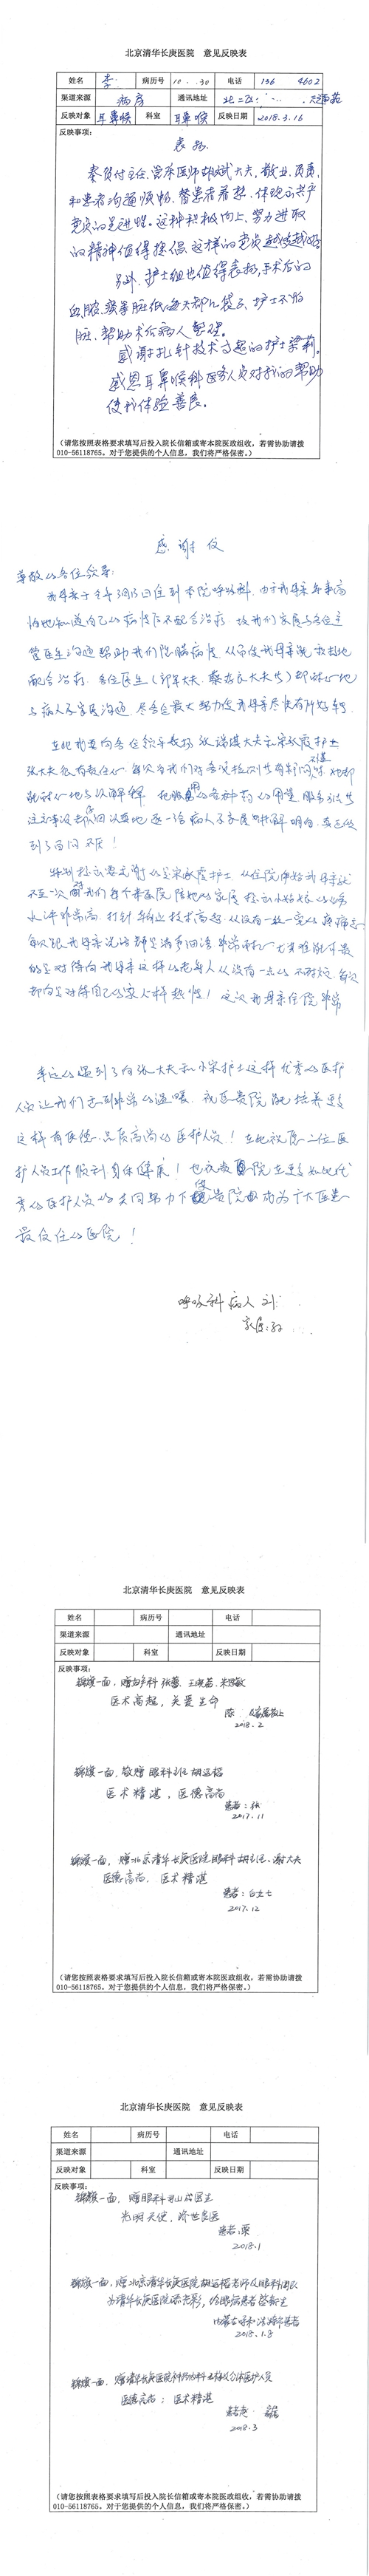 北京清华长庚医院 意见反映表
姓名 李 病历号 10 30 电话 136 4602
渠道来源 病房 通讯地址 北
反映对象 耳鼻喉 科室 耳鼻喉 反映日期 2018.3.16
反映事项:
表扬
秦贺付主任、主治医师 斌大夫,敬业、负责,
和患者沟通顺畅,替患者着想,体现了共产
党员的先进性。这种积极向上,努力进取
的精神值得提倡,这样的党员越多越好。
另外,护士组也值得表扬,手术后的
血脓、痰等脏 每天都 护士不怕
脏,帮助术后病人整理。
感谢扎针技术了起的护士梁莉。
感恩耳鼻喉科医务人员对我的帮助
使我体验善良。
(请您按照表格要求填写后投入院长信箱或寄本院医政组收,若需协助请拨
010-56118765。对于您提供的个人信息,我们将严格保密。)
感谢信
尊敬的各位领导:
我母亲于今年3月15日住到本院呼吸科,由于我母亲年事高
怕她知道自己的病情后不配合治疗,故我们家属与各位主
管医生沟通帮助我们隐瞒病情,从而使我母亲能积极地
配合治疗,各位医生( 大夫、蔡 大夫等)都耐心地
与病人及家属沟通,尽各位最大努力使我母亲尽快有所好转。
在此我要向各位领导表扬张 大夫和宋 霞护士
张大夫很有责任心,每次当我们对各项检测等有疑问时,她都
能耐心地与次解释,把服用的各种药的用量、服务
注意事项去 回认真地逐一给病人及家属讲解明白,真正做
到了百问不厌!
特别 要感谢的是宋 霞护士,从住院开始我母亲就
不止一次 我们每个来医院陪她的家属
水平非常高,打针 技术高超,从没有一丝一毫的疼痛
每次跟我母亲说话都是满 非常耐心,尤其难能可贵
的是对待向我母亲这样的老年人从没有一点的不耐烦,每次
都向是对待自己的家人一样热情!这次我母亲住院非常
幸运的遇到了向张大夫和小宋护士这样优秀的医护
人员让我们感到非常的温暖,祝愿贵院能培养更多
这样有医德,品质高尚的医护人员!在此祝愿二位医
护人员工作顺利身体健康!也祝愿贵院在更多如此优
秀的医护人员的共同努力下使贵院成为广大医患
最信任的医院!
呼吸科病人刘
家属:
北京清华长庚医院 意见反映表
姓名 病历号 电话
渠道来源 通讯地址
反映对象 科室 反映日期
反映事项:
锦旗一面,赠 科 张蕾、王 、宋
医术高超,关爱生命
陈 家属敬上
2018.2
锦旗一面,敬赠眼科主任胡运韬
医术精湛,医德高尚
患者:张
2017.11
锦旗一面,赠北京清华长庚医院眼科胡主任、谢大夫
医德高尚,医术精湛
患者:白
2017.12
(请您按照表格要求填写后投入院长信箱或寄本院医政组收,若需协助请拨
010-56118765。对于您提供的个人信息,我们将严格保密。)
北京清华长庚医院 意见反映表
姓名 病历号 电话
渠道来源 通讯地址
反映对象 科室 反映日期
反映事项:
锦旗一面,赠眼科 医生
光明天使,济世良医
患者:栗
2018.1
锦旗一面,赠北京清华长庚医院胡运韬老师及眼科团队
为清华长庚医院添光彩,给眼病患者 新生
内蒙古呼和浩特患者
2018.1.8
锦旗一面,赠清华长庚医院 科 及全体医护人员
医德高尚;医术精湛
患者老
2018.3
(请您按照表格要求填写后投入院长信箱或寄本院医政组收,若需协助请拨
010-56118765。对于您提供的个人信息,我们将严格保密。)